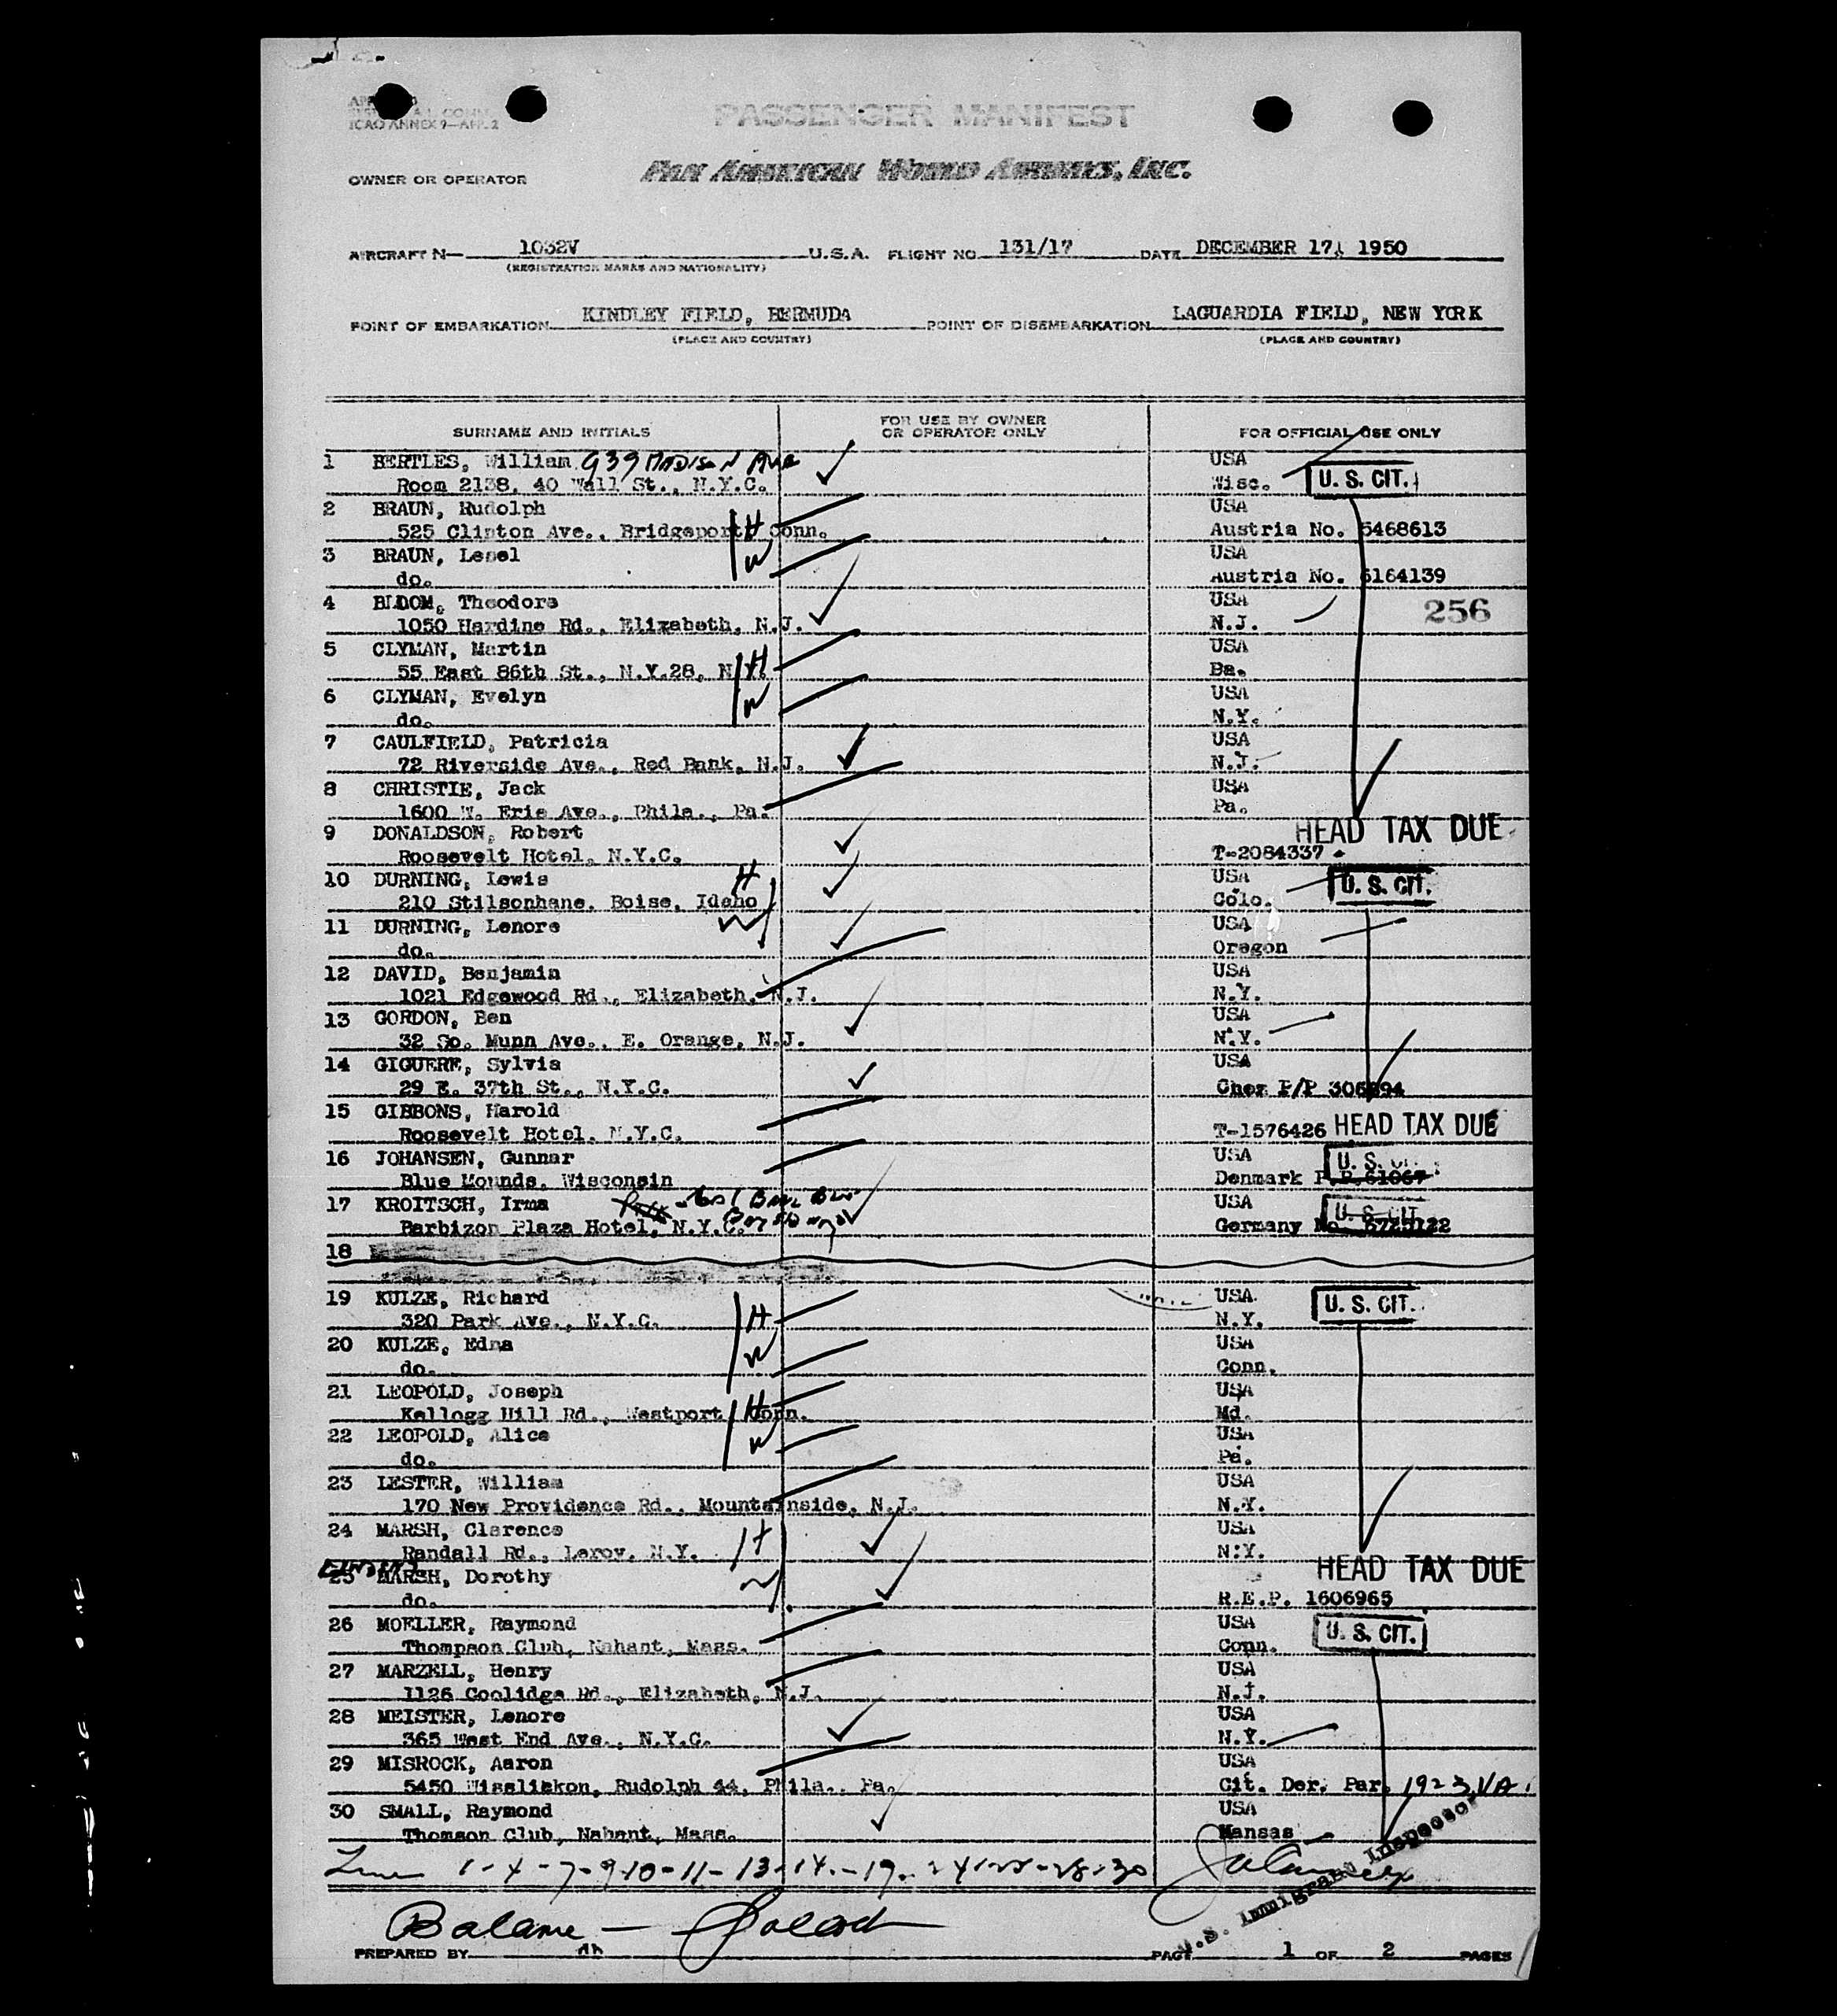 ICAO ANNEX 9—APP. 2
PASSENGER MANIFEST
OWNER OR OPERATOR PAN AMERICAN WORLD AIRWAYS, INC.
AIRCRAFT N— 1032V U.S.A. FLIGHT NO. 131/17 DATE DECEMBER 17, 1950
(REGISTRATION MARKS AND NATIONALITY)
POINT OF EMBARKATION KINDLEY FIELD, BERMUDA POINT OF DISEMBARKATION LAGUARDIA FIELD, NEW YORK
(PLACE AND COUNTRY) (PLACE AND COUNTRY)
SURNAME AND INITIALS FOR USE BY OWNER OR OPERATOR ONLY FOR OFFICIAL USE ONLY
1 BERTLES, William 939 MADISON Ave USA
Room 2138, 40 Wall St., N.Y.C. Wisc. U. S. CIT.
2 BRAUN, Rudolph USA
525 Clinton Ave., Bridgeport, Conn. H Austria No. 5468613
3 BRAUN, Lesel W USA
do. Austria No. 6164139
4 BLOOM, Theodore USA 256
1050 Harding Rd., Elizabeth, N.J. N.J.
5 CLYMAN, Martin USA
55 East 86th St., N.Y.28, N.Y. H Ba.
6 CLYMAN, Evelyn W USA
do. N.Y.
7 CAULFIELD, Patricia USA
72 Riverside Ave., Red Bank, N.J. N.J.
8 CHRISTIE, Jack USA
1600 W. Erie Ave., Phila., Pa. Pa.
9 DONALDSON, Robert HEAD TAX DUE
Roosevelt Hotel, N.Y.C. T-2084337
10 DURNING, Lewis H USA U. S. CIT.
210 Stilsonhane, Boise, Idaho Colo.
11 DURNING, Lenore W USA
do. Oregon
12 DAVID, Benjamin USA
1021 Edgewood Rd., Elizabeth, N.J. N.Y.
13 GORDON, Ben USA
32 So. Munn Ave., E. Orange, N.J. N.Y.
14 GIGUERE, Sylvia USA
29 E. 37th St., N.Y.C. Chez P/P
15 GIBBONS, Harold
Roosevelt Hotel, N.Y.C. T-1576426 HEAD TAX DUE
16 JOHANSEN, Gunnar USA U. S. CIT.
Blue Mounds, Wisconsin Denmark P.P.61067
17 KROITSCH, Irma USA U. S. CIT.
Barbizon Plaza Hotel, N.Y.C. Germany No. 6725122
18
19 KULZE, Richard USA U. S. CIT.
320 Park Ave., N.Y.C. H N.Y.
20 KULZE, Edna W USA
do. Conn.
21 LEOPOLD, Joseph USA
Kellogg Hill Rd., Westport, Conn. H Md.
22 LEOPOLD, Alice W USA
do. Pa.
23 LESTER, William USA
170 New Providence Rd., Mountainside, N.J. N.Y.
24 MARSH, Clarence USA
Randall Rd., Leroy, N.Y. H N.Y.
25 MARSH, Dorothy W HEAD TAX DUE
do. R.E.P. 1606965
26 MOELLER, Raymond USA U. S. CIT.
Thompson Club, Nahant, Mass. Conn.
27 MARZELL, Henry USA
1126 Coolidge Rd., Elizabeth, N.J. N.J.
28 MEISTER, Lenore USA
365 West End Ave., N.Y.C. N.Y.
29 MISROCK, Aaron USA
5450 Wisslickon, Rudolph 44, Phila., Pa. Cit. Der. Par. 1923, VA.
30 SMALL, Raymond USA
Thomson Club, Nahant, Mass. Kansas
1-4-7-9-10-11-13-14-19-24-25-28-30
U.S. Immigrant Inspector
Balance —
PREPARED BY PAGE 1 OF 2 PAGES